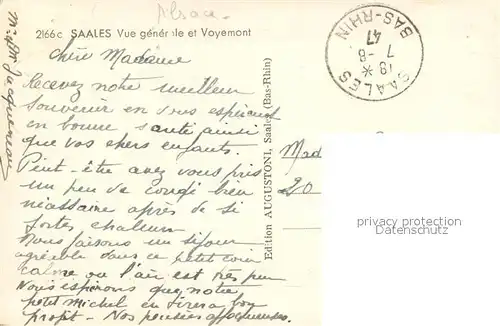 Alsace.
2166c SAALES Vue générale et Voyemont
Chère Madame
Recevez notre meilleur
souvenir en vous espérant
en bonne santé ainsi
que vos chers enfants.
Peut-être avez vous pris
un peu de congé bien
nécéssaire après de si
fortes chaleurs
Nous faisons un séjour
agréable dans ce petit coin
calme ou l'air est très pur
Nous espérons que notre
petit michel en tirera bon
profit - Nos pensées affectueuses.
Edition AUGUSTONI, Saales (Bas-Rhin)
SAALES BAS-RHIN
19 * 7 -8
47
Mad
20
privacy protection
copyright